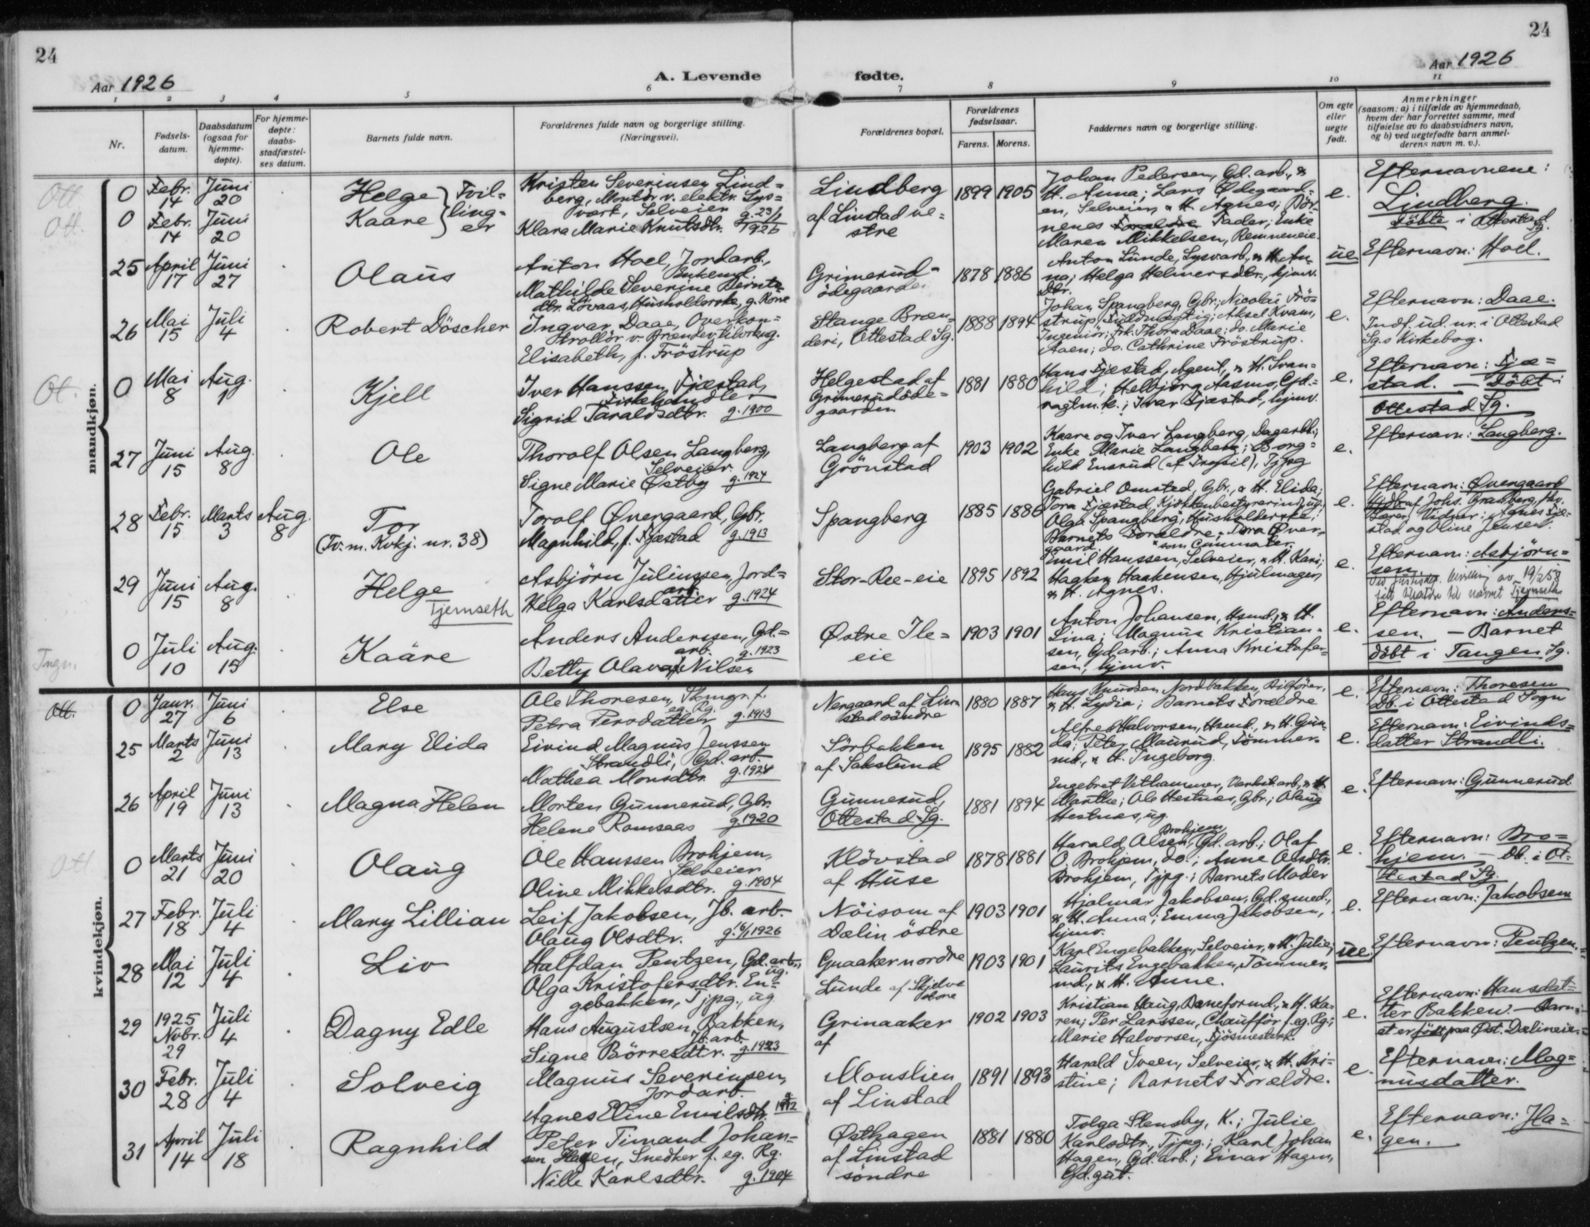 24
24
Aar 1926
A. Levende fødte.
Aar 1926
1 2 3 4 5 6 7 8 9 10 11
Nr.
Fødsels-
datum.
Daabsdatum
(ogsaa for
hjemme-
døpte).
For hjemme-
døpte:
daabs-
stadfæstel-
ses datum.
Barnets fulde navn.
Forældrenes fulde navn og borgerlige stilling.
(Næringsvei).
Forældrenes bopæl.
Forældrenes
fødselsaar.
Farens. Morens.
Faddernes navn og borgerlige stilling.
Om egte
eller
uegte
født.
Anmerkninger
(saasom: a) i tilfælde av hjemmedaab,
hvem der har forrettet samme, med
tilføielse av to daabsvidners navn,
og b) ved uegtefødte barn anmel-
derens navn m. v.).
mandkjøn.
Ott.
0
Febr.
14
Juni
20
Helge
Tvil-
linger
Kristen Severinsen Lind-
berg, Montør v. elektr. Lys-
vært, Selveier
Klara Marie Knutsdtr.
Lindberg
af Linstad ve-
stre
1899 1905
Johan Pedersen, Gd. arb., &
H. Anna; Lars Ødegaard-
en, Selveier, & H. Agnes, Bar-
nenes Fader; Enke
Maren Mikkelsen,
e.
Efternavnene:
Lindberg.
Döbte i Ottestad
Sg.
Ott.
0
Febr.
14
Juni
20
Kaare
25
April
17
Juni
27
Olaüs
Anton Hoel, Jordarb.,
Ünkemd.
Mathilde Severine Bernts-
dtr. Løvaas, Husholderske, g. Kone
Grimerud-
ödegaarden
1878 1886
Anton Lunde, Lysvarb., & H. An-
na; Helga Helmersdtr., hjmv.
Dtr.
ue
Efternavn: Hoel.
26
Mai
15
Juli
4
Robert Döscher
Ingvar Daae, Overkon-
trollör v. Brænderikontrg.
Elisabeth, f. Fröstrup
Stange Bræn-
deri, Ottestad Sg.
1888 1894
Johan Spangberg, Gbr.; Nicolai Frö-
strup, Fuldmægtig; Aksel Kvam,
Ingeniör; Frk. Thora Daae; do. Marie
Aaen; do. Cathrine Fröstrup.
e.
Efternavn: Daae.
Indf. ud. nr. i Ottestad
Sg.s Kirkebog.
Ot.
0
Mai
8
Aug.
1
Kjell
Iver Hanssen Fjæstad,
Sigrid Taraldsdtr. g. 1900
Helgestad af
Grimerudöde-
gaarden
1881 1880
Hans Fjæstad, Agent, & H. Svan-
hild; Helbjörg Aasmo, Gd.-
; Ivar Fjæstad, hjmv.
e.
Efternavn: Fjæ-
stad. — Döbt i
Ottestad Sg.
27
Juni
15
Aug.
8
Ole
Thorolf Olsen Langberg,
Selveier
Signe Marie Østby g. 1924
Langberg af
Grönstad
1903 1902
Kaare og Ivar Langberg, Dagarbb.;
Enke Marie Langberg; Borg-
hild Ensrud (af Trysil), Tjpg
e.
Efternavn: Langberg.
28
Febr.
15
Marts
3
Aug.
8
Tor
(Tv. m. Kvkj. nr. 38)
Torolf Øvergaard, Gbr.
Magnhild, f. Fjæstad g. 1913
Spangberg
1885 1886
Gabriel Omsted, Gbr., & H. Elida;
Tora Fjæstad, Kjökkenbestyrerinde, ug.;
Olga Spangberg, Husholderske;
Barnets Forældre; Tora Øver-
gaard
e.
Efternavn: Øvergaard
29
Juni
15
Aug.
8
Helge
Tjernseth
Asbjörn Juliussen, Jord-
arb.
Helga Karlsdatter g. 1924
Stor-Ree-eie
1895 1892
Emil Hanssen, Selveier, & H. Kari;
Haaken Haakensen, Hjulmager,
& H. Agnes.
e.
Efternavn: Asbjörn-
sen.
0
Juli
10
Aug.
15
Kaäre
Anders Anderssen, Gd.-
arb. g. 1923
Betty Olava Nilsen
Østre Ile-
eie
1903 1901
Anton Johansen, Hsmd., & H.
Lina; Magnus Kristian-
sen, Gd.arb.; Anna Kristofer-
sen, hjmv.
e.
Efternavn: Anders-
sen. — Barnet
döbt i Tangen Sg.
Tngn.
kvindekjøn.
Ott.
0
Janr.
27
Juni
6
Else
Ole Thoresen,
eg. Rg.
Petra Persdatter g. 1913
Nergaard af Lin-
stad söndre
1880 1887
Hans Knudsen Nordbakken, Bilförer,
& H. Lydia; Barnets Forældre
e.
Efternavn: Thoresen
Db. i Ottestad Sogn
25
Marts
2
Juni
13
Mary Elida
Eivind Magnus Jenssen
Strandli, Gd. arb.
Mathea Monsdtr. g. 1924
Sörbakken
af Sakslund
1895 1882
Alfred Halvorsen, Hsmd., & H. Gvin-
da; Peter Maurud, Tömmer-
md., & H. Ingeborg.
e.
Efternavn: Eivinds-
datter Strandli.
26
April
19
Juni
13
Magna Helen
Morten Gunnerud, Gbr.
Helene Romsaas g. 1920
Gunnerud,
Ottestad Sg.
1881 1894
Engebret Vithammer, Værkst.arb., & H.
Marthe; Ole Hestnes, Gbr.; Olaug
Hestnes, ug.
e.
Efternavn: Gunnerud
Ott
0
Marts
21
Juni
20
Olaug
Ole Hanssen Brohjem,
Selveier
Oline Mikkelsdtr. g. 1904
Klövstad
af Huse
1878 1881
Harald Olsen Brohjem, Gd. arb.; Olaf
O. Brohjem, do.; Anne Olsdtr.
Brohjem, Tjpg.; Barnets Moder
e.
Efternavn: Bro-
hjem. — Db. i Ot-
testad Sg.
27
Febr.
18
Juli
4
Mary Lillian
Leif Jakobsen, Jb. arb.
Olaug Olsdtr. g. 6/1 1926
Nöisom af
Dælin östre
1903 1901
Hjalmar Jakobsen, Gd. smed,
& H. Anna; Emma Jakobsen,
hjmv.
e.
Efternavn: Jakobsen
28
Mai
12
Juli
4
Liv
Halfdan Pentzen, Gd. arb.,
ug.
Olga Kristofersdtr. En-
gebakken, Tjpg., ug
Gaaker nordre
Lunde af Skjelve
1903 1901
Karl Engebakken, Selveier, & H. Julie;
Laurits Engebakken, Tömmer-
md., & H. Anne.
ue
Efternavn: Pentzen.
29
1925
Novbr.
29
Juli
4
Dagny Edle
Hans Augustsen Bakken,
Jb.arb.
Signe Börresdtr. g. 1923
Grinaaker
af
1902 1903
Kristian Haug, Baneformd., & H. Ka-
ren; Per Larssen, Chaufför f. eg. Rg;
Marie Halvorsen, Fjösmesterk.
e.
Efternavn: Hansdat-
ter Bakken. — Barn-
et er født paa Øst. Dælineie.
30
Febr.
28
Juli
4
Solveig
Magnus Severinsen,
Jordarb.
Agnes Eline Emilsdtr. g. 1912
Monslien
af Linstad
1891 1893
Harald Sveen, Selveier, & H. Kri-
stine; Barnets Forældre.
e.
Efternavn: Mag-
nusdatter.
31
April
14
Juli
18
Ragnhild
Peter Timand Johan-
sen Hagen, Snedker f. eg. Rg.
Nille Karlsdtr. g. 1904
Østhagen
af Linstad
söndre
1881 1880
Tolga Stensby, K.; Julie
Karlsdtr., Tjpg.; Karl Johan
Hagen, Gd. arb.; Einar Hagen,
Gd.gut.
e.
Efternavn: Ha-
gen.